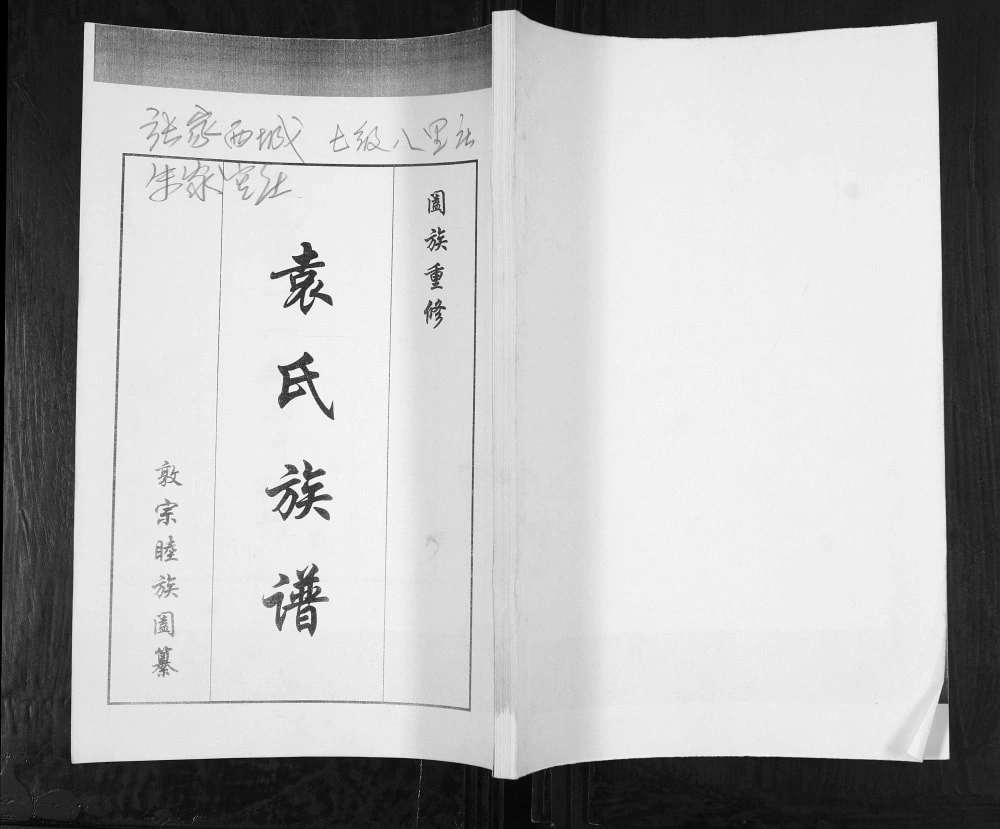 张家西城 七级八里庄
朱家
阖族重修
袁氏族谱
敦宗睦族阖纂